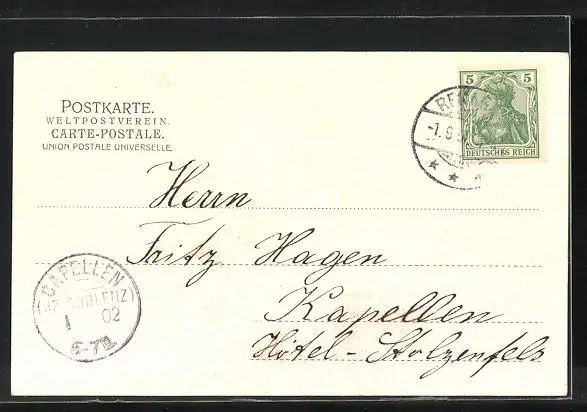 POSTKARTE.
WELTPOSTVEREIN.
CARTE-POSTALE.
UNION POSTALE UNIVERSELLE.
5 5
DEUTSCHES REICH
-7.9.
Herrn
Fritz Hagen
Kapellen
Hôtel - Stolzenfels
CAPELLEN
(COBLENZ)
1 02
6-7N.